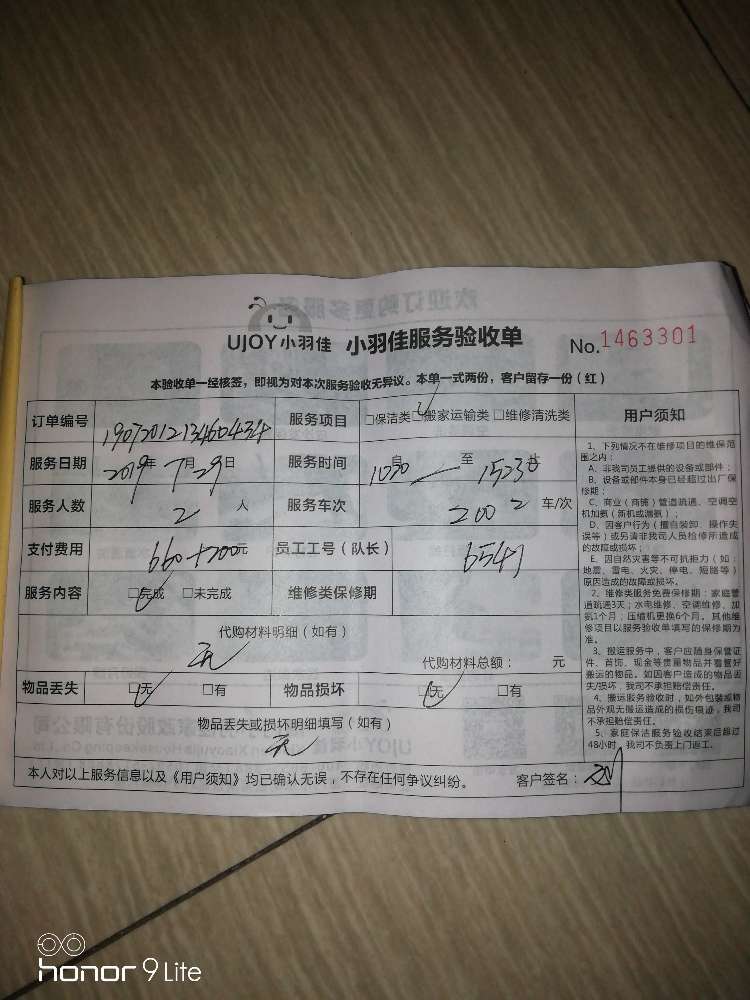 UJOY小羽佳 小羽佳服务验收单 No.1463301
本验收单一经核签，即视为对本次服务验收无异议。本单一式两份，客户留存一份（红）
订单编号 1907201213460434 服务项目 □保洁类 □搬家运输类 □维修清洗类
服务日期 2019年7月29日 服务时间 自1030至1523止
服务人数 2人 服务车次 2002车/次
支付费用 660+200元 员工工号（队长） 6547
服务内容 □完成 □未完成 维修类保修期
代购材料明细（如有）
无
代购材料总额： 元
物品丢失 □无 □有 物品损坏 □无 □有
物品丢失或损坏明细填写（如有）
无
本人对以上服务信息以及《用户须知》均已确认无误，不存在任何争议纠纷。 客户签名：
用户须知
1、下列情况不在维修项目的维保范
围之内：
A、非我司员工提供的设备或部件；
B、设备或部件本身已经超过出厂保
修期；
C、商业（商铺）管道疏通、空调空
机加氟（新机或漏氟）；
D、因客户行为（擅自装卸、操作失
误等）或另请非我司人员检修所造成
的故障或损坏；
E、因自然灾害等不可抗拒力（如：
地震、雷电、火灾、停电、短路等）
原因造成的故障或损坏。
2、维修类服务免费保修期：家庭管
道疏通3天；水电维修、空调维修、加
氨1个月；压缩机更换6个月。其他维
修项目以服务验收单填写的保修期为
准。
3、搬运服务中，客户应随身保管证
件、首饰、现金等贵重物品并看管好
搬运的物品。如因客户造成的物品丢
失/损坏，我司不承担赔偿责任。
4、搬运服务验收时，如外包装或物
品外观无搬运造成的损伤痕迹，我司
不承担赔偿责任。
5、家庭保洁服务验收结束后超过
48小时，我司不负责上门返工。
honor 9 Lite